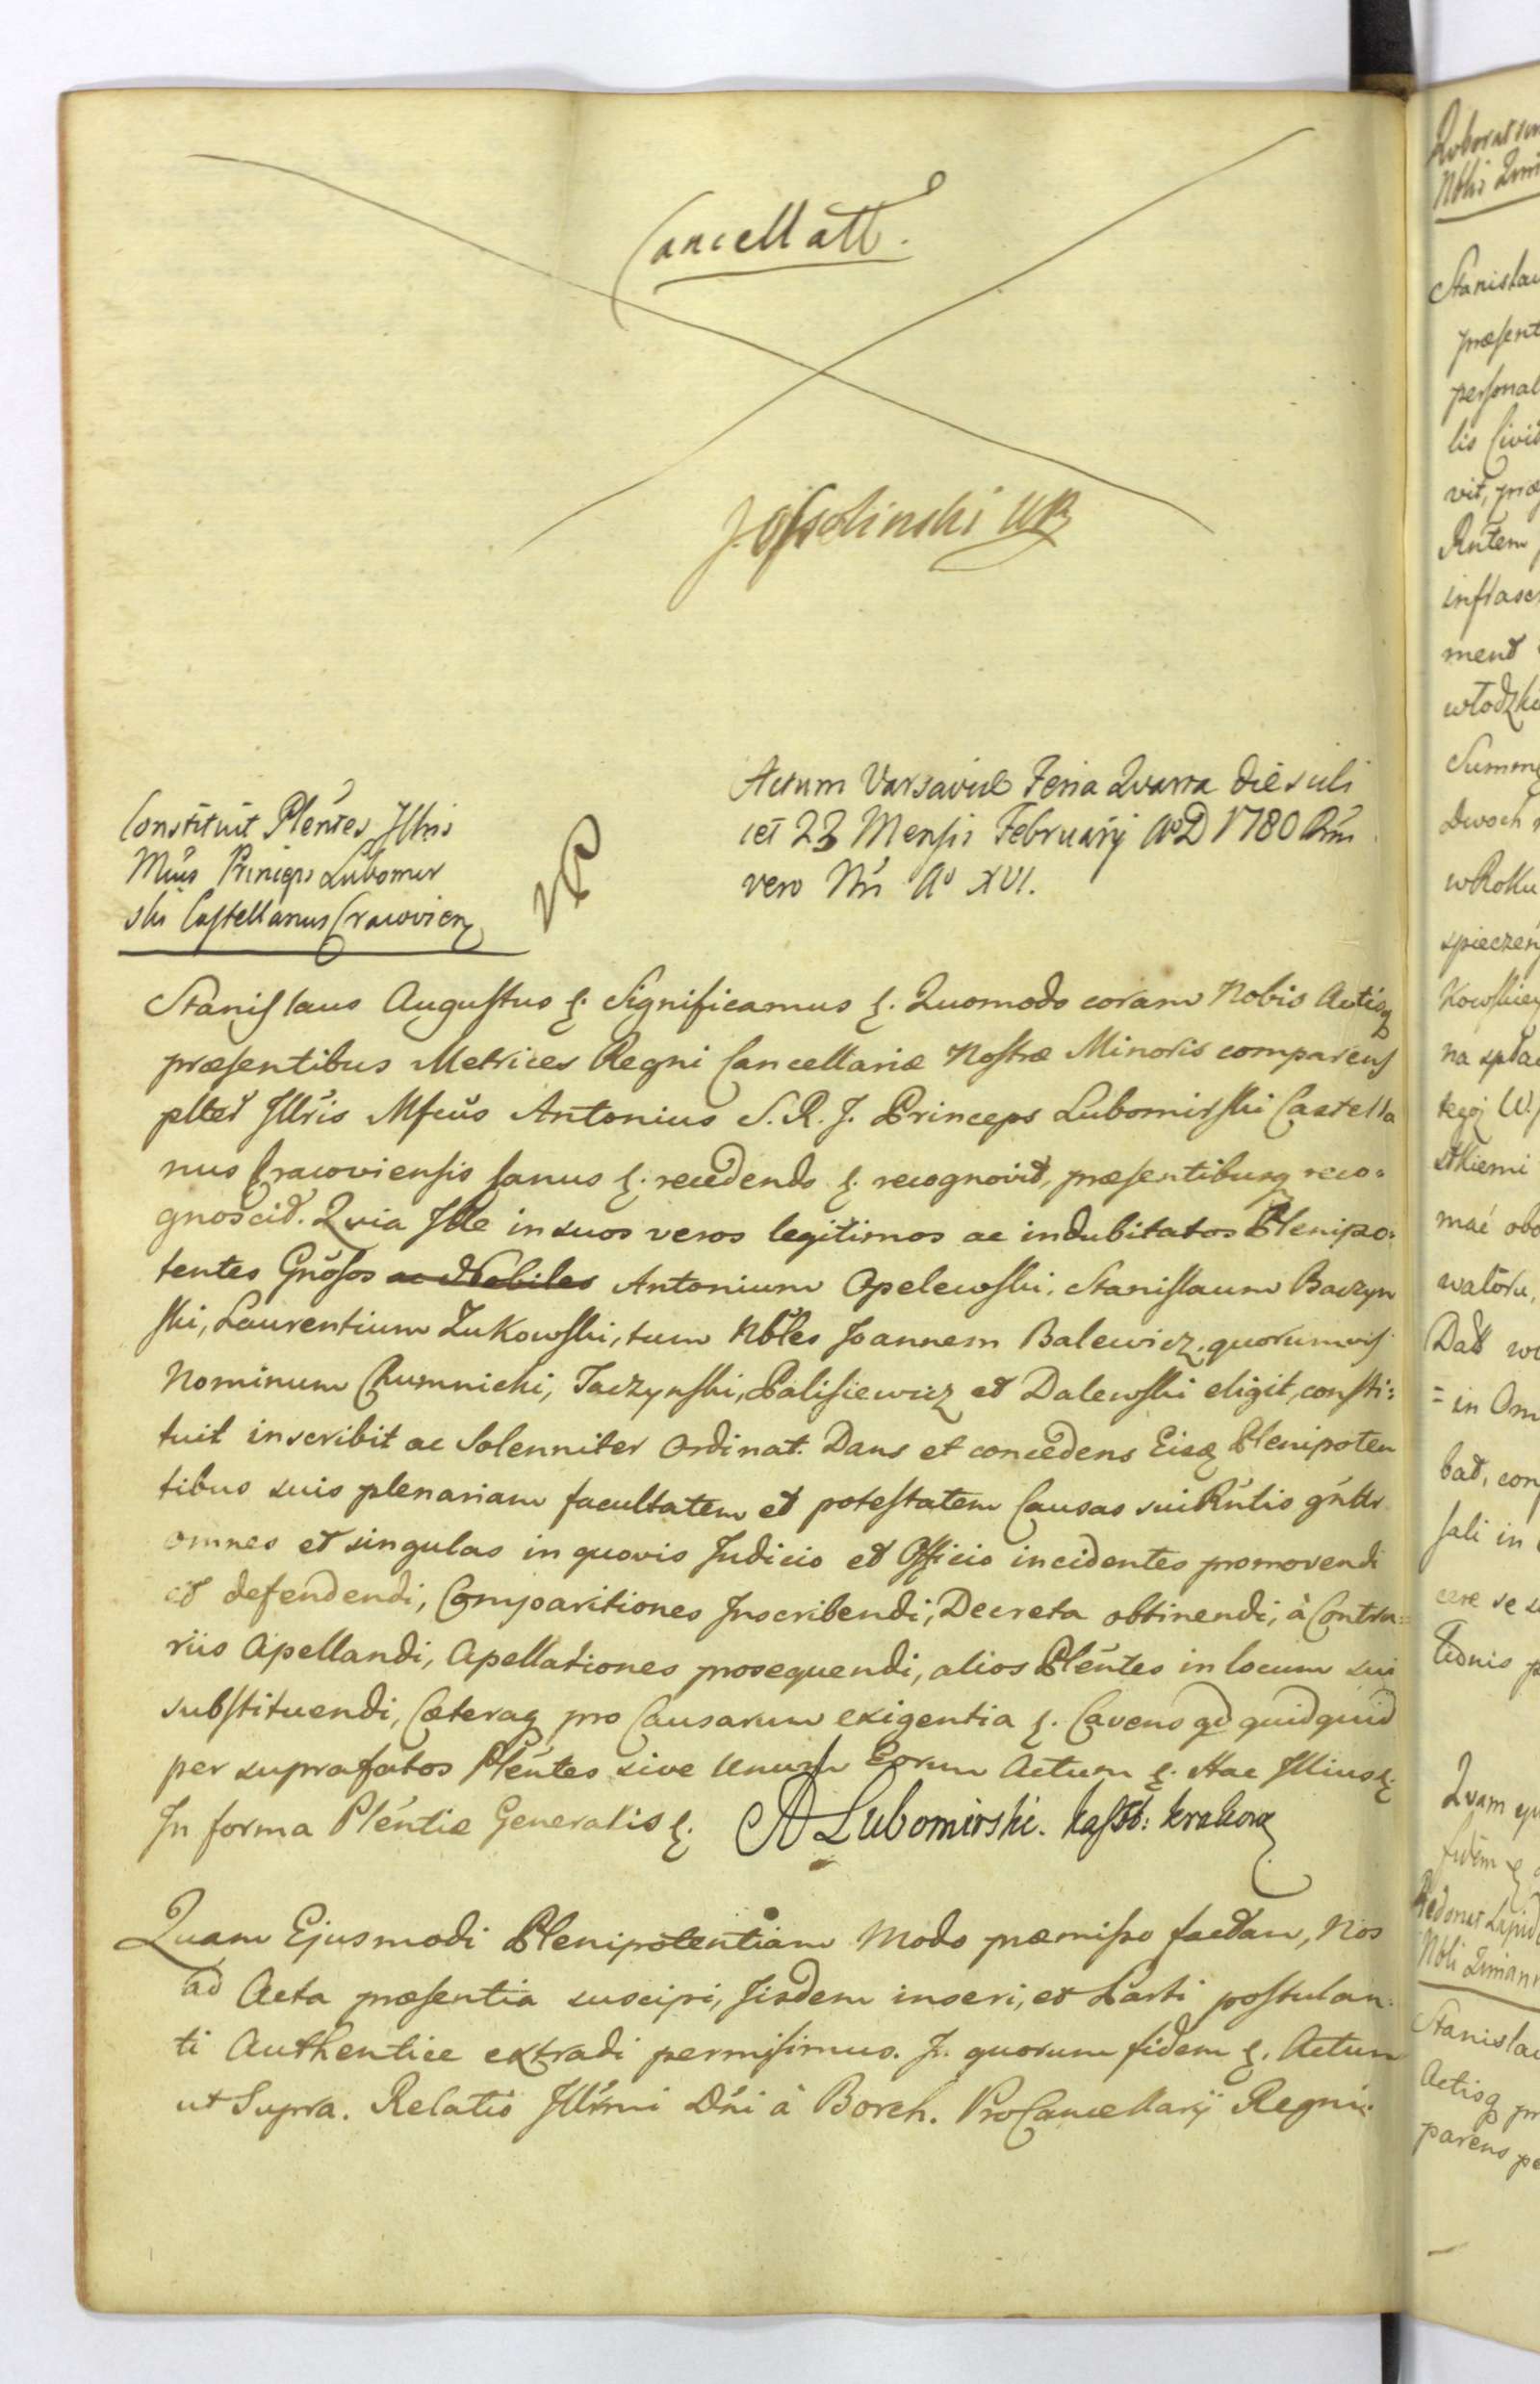 Cancellatt.
J. Ossolinski WP
Constituit Plentes Illris
Mfus Princeps Lubomir
ski Castellanus Cracovien
Actum Varsaviæ Feria Quarta die scili
cet 23 Mensis Februarij AoD 1780 Rni
vero Nri Ao XVI.
Stanislaus Augustus &. Significamus &. Quomodo coram Nobis Actisq
præsentibus Metrices Regni Cancellariæ Nostræ Minoris comparens
plter Illris Mfcus Antonius S. R. J. Princeps Lubomirski Castella
nus Cracoviensis sanus &. recedendo &. recognovit, præsentibusq reco=
gnoscit. Quia Ille in suos veros legitimos ac indubitatos Plenipo=
tentes Gnosos ac Nobiles Antonium Opelewski, Stanislaum Baczyn
ski, Laurentium Zukowski, tum Nbles Joannem Balewicz, quorumvis
Nominum Rumnicki, Taczynski, Palisiewicz et Dalewski eligit, consti=
tuit inscribit ac Solenniter Ordinat. Dans et concedens Eisq Plenipoten
tibus suis plenariam facultatem et potestatem Causas sui Rntis gnltr
omnes et singulas in quovis Judicio et Officio incidentes promovendi
et defendendi, Comparitiones Inscribendi, Decreta obtinendi, à Contra=
riis Apellandi, Apellationes prosequendi, alios Plentes in locum sui
substituendi, Cæteraq pro Causarum exigentia &. Cavens qd quidquid
per suprafatos Plentes sive Unum Eorum Actum &. Hac Illius &.
In forma Plentiæ Generalis &. A Lubomirski. kaszt: krakow
Quam Ejusmodi Plenipotentiam Modo præmisso factam, Nos
ad Acta præsentia suscipi, Iisdem inseri, et Parti postulan
ti Authentice extradi permisimus. In quorum fidem &. Actum
ut Supra. Relatio Illrmi Dni à Borch. ProCancellarij Regni.
Stanislau
præsent
personal
lis Civi
vit, præ
infrasc
mend
Summ
Dwoch
w Roku
Kowskiey
tegoż W.
mać obo
= in Om
bat, con
sali in
cere se
Quam
fidem &
Stanislau
Actisq pr
parens pe